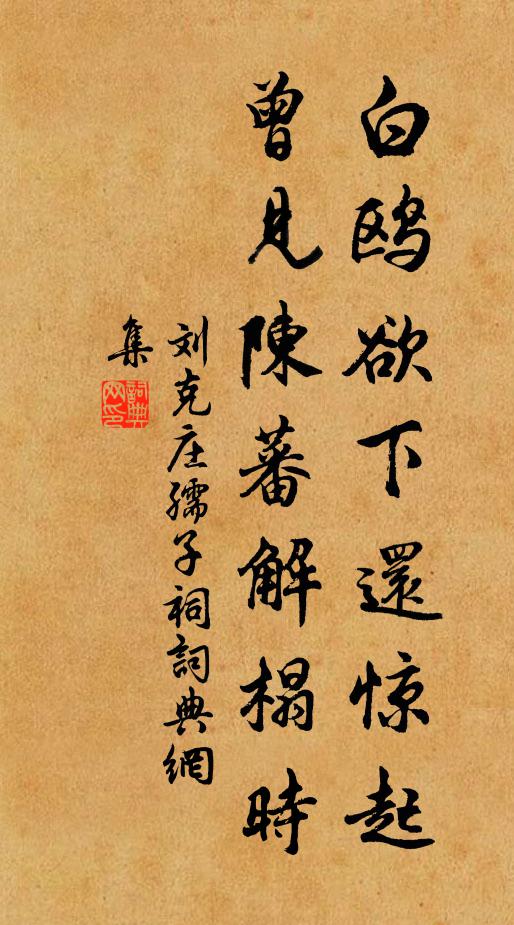 白鸥欲下還惊起
曾見陳蕃解榻時
刘克庄孺子祠詞典網
集
詞典网印